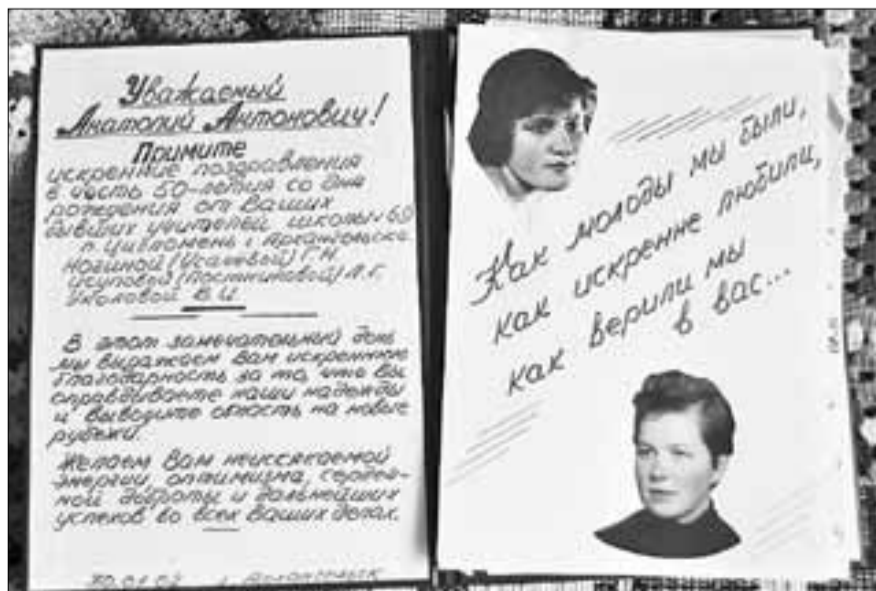 Уважаемый
Анатолий Антонович!
Примите
искренние поздравления
в честь 50-летия со дня
рождения от Ваших
бывших учителей школы №69
п. Цигломень г. Архангельска
Ногиной (Усачевой) Г.Н.
Исуповой (Постниковой) Л.Г.
Уколовой В.И.
В этот замечательный день
мы выражаем Вам искреннюю
благодарность за то, что Вы
оправдываете наши надежды
и выводите область на новые
рубежи.
Желаем Вам неиссякаемой
энергии, оптимизма, сердеч-
ной доброты и дальнейших
успехов во всех Ваших делах.
г. Архангельск
Как молоды мы были,
как искренне любили,
как верили мы
в вас...